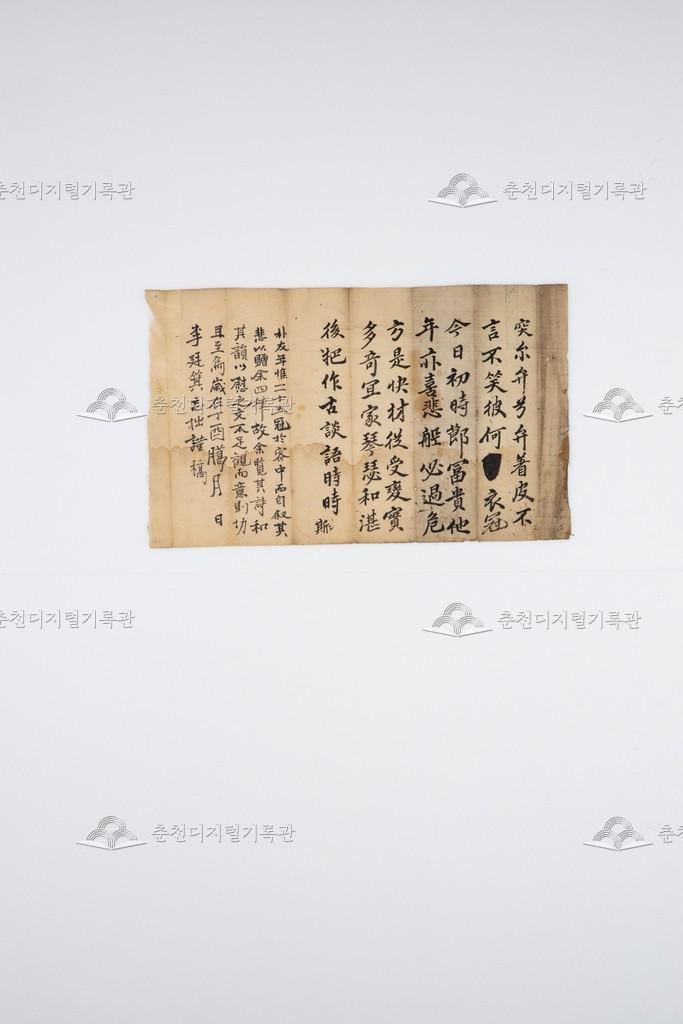 突尔弁兮弁着皮不
言不笑彼何衣冠
今日初時節富貴他
年亦喜悲般必過危
方是快材從受變實
多奇宜家琴瑟和湛
後把作古談語時時
斯
朴友年惟二十五冠於客中而自叙其
悲以贈余四律故余覽其詩和
其韻以慰之文不足觀而意則切
且至焉歲在丁酉臘月 日
李廷箕忘拙謹稿
춘천디지털기록관
춘천디지털기록관
춘천디지털기록관
춘천디지털기록관
춘천디지털기록관
춘천디지털기록관